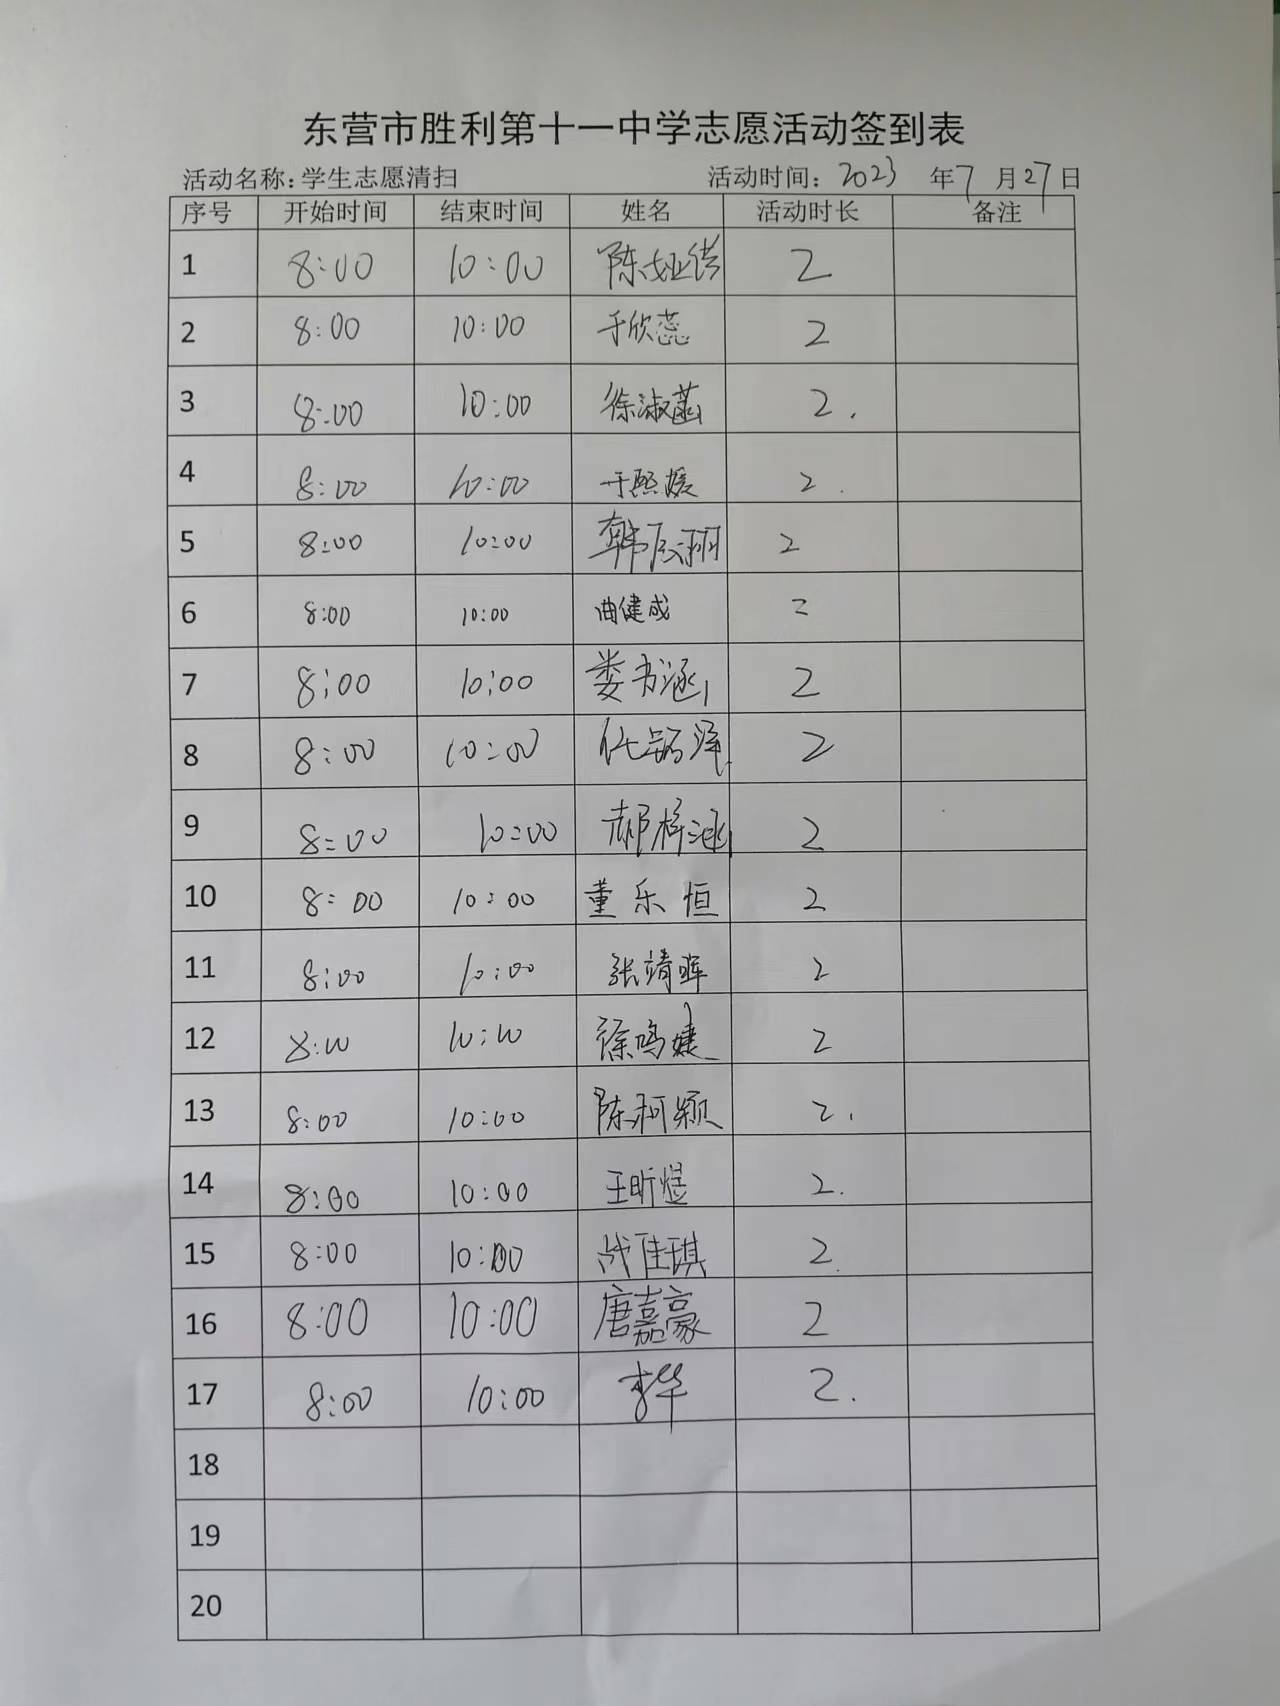 东营市胜利第十一中学志愿活动签到表
活动名称：学生志愿清扫 活动时间：2023 年7 月27日
序号 开始时间 结束时间 姓名 活动时长 备注
1 8:00 10:00 陈 2
2 8:00 10:00 于欣蕊 2
3 8:00 10:00 徐淑菡 2.
4 8:00 10:00 于熙媛 2.
5 8:00 10:00 韩辰珊 2
6 8:00 10:00 曲健成 2
7 8:00 10:00 娄书涵 2
8 8:00 10:00 任铭泽 2
9 8:00 10:00 郝梓涵 2
10 8:00 10:00 董乐恒 2
11 8:00 10:00 张靖晖 2
12 8:00 10:00 徐鸣婕 2
13 8:00 10:00 陈珂颖 2.
14 8:00 10:00 王昕煜 2.
15 8:00 10:00 战佳琪 2.
16 8:00 10:00 唐嘉豪 2
17 8:00 10:00 李华 2.
18
19
20